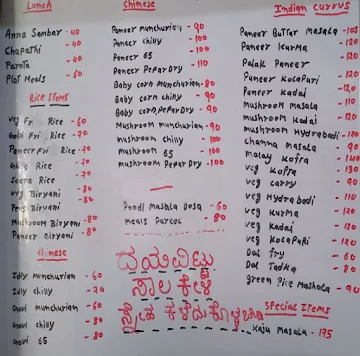 Lunch
Anna Sambar - 40
Chapathi - 40
Parota - 40
Plat Meals - 60
Rice Items
Veg Fri Rice - 60
Gobi Fri Rice - 70
Paneer Fri Rice - 70
Ghee Rice - 70
Jeera Rice - 70
Veg Biryani - 80
Peas Biryani
Mushroom Biryani - 80
Paneer Biryani - 80
Chinese
Idly Munchurian - 60
Idly chilly - 70
Govi munchurian - 60
Govi chilly - 80
Govi 65 - 80
Chinese
Paneer munchurian - 90
Paneer chilly - 100
Paneer 65 - 100
Paneer Peper Dry - 110
Baby corn munchurian - 80
Baby corn chilly - 90
Baby corn Peper Dry - 90
Mushroom munchurian - 90
mushroom chilly - 100
mushroom 65 - 100
mushroom Peper Dry - 100
Poodi Mashla Dosa - 60
meals Parcel - 80
ದಯವಿಟ್ಟು
ಸಾಲ ಕೇಳಿ
ಸ್ನೇಹ ಕಳೆದುಕೊಳ್ಳಬೇಡಿ
Indian Currys
Paneer Buttar Masala - 105
Paneer Kurma - 120
Palak Paneer - 120
Paneer Kolapuri - 120
Paneer Kadai - 120
Mushroom masala - 110
mushroom Kadai - 120
mushroom Hydrabadi - 130
channa masala - 90
malay Kofra - 130
veg Kofra - 130
veg carry - 90
veg Hydrabadi - 110
veg Kurma - 120
veg Kadai - 120
veg Kolapuri - 120
Dal fry - 60
Dal Tadka - 80
green Pice Mashala - 90
Special Items
Kaja Masala - 175